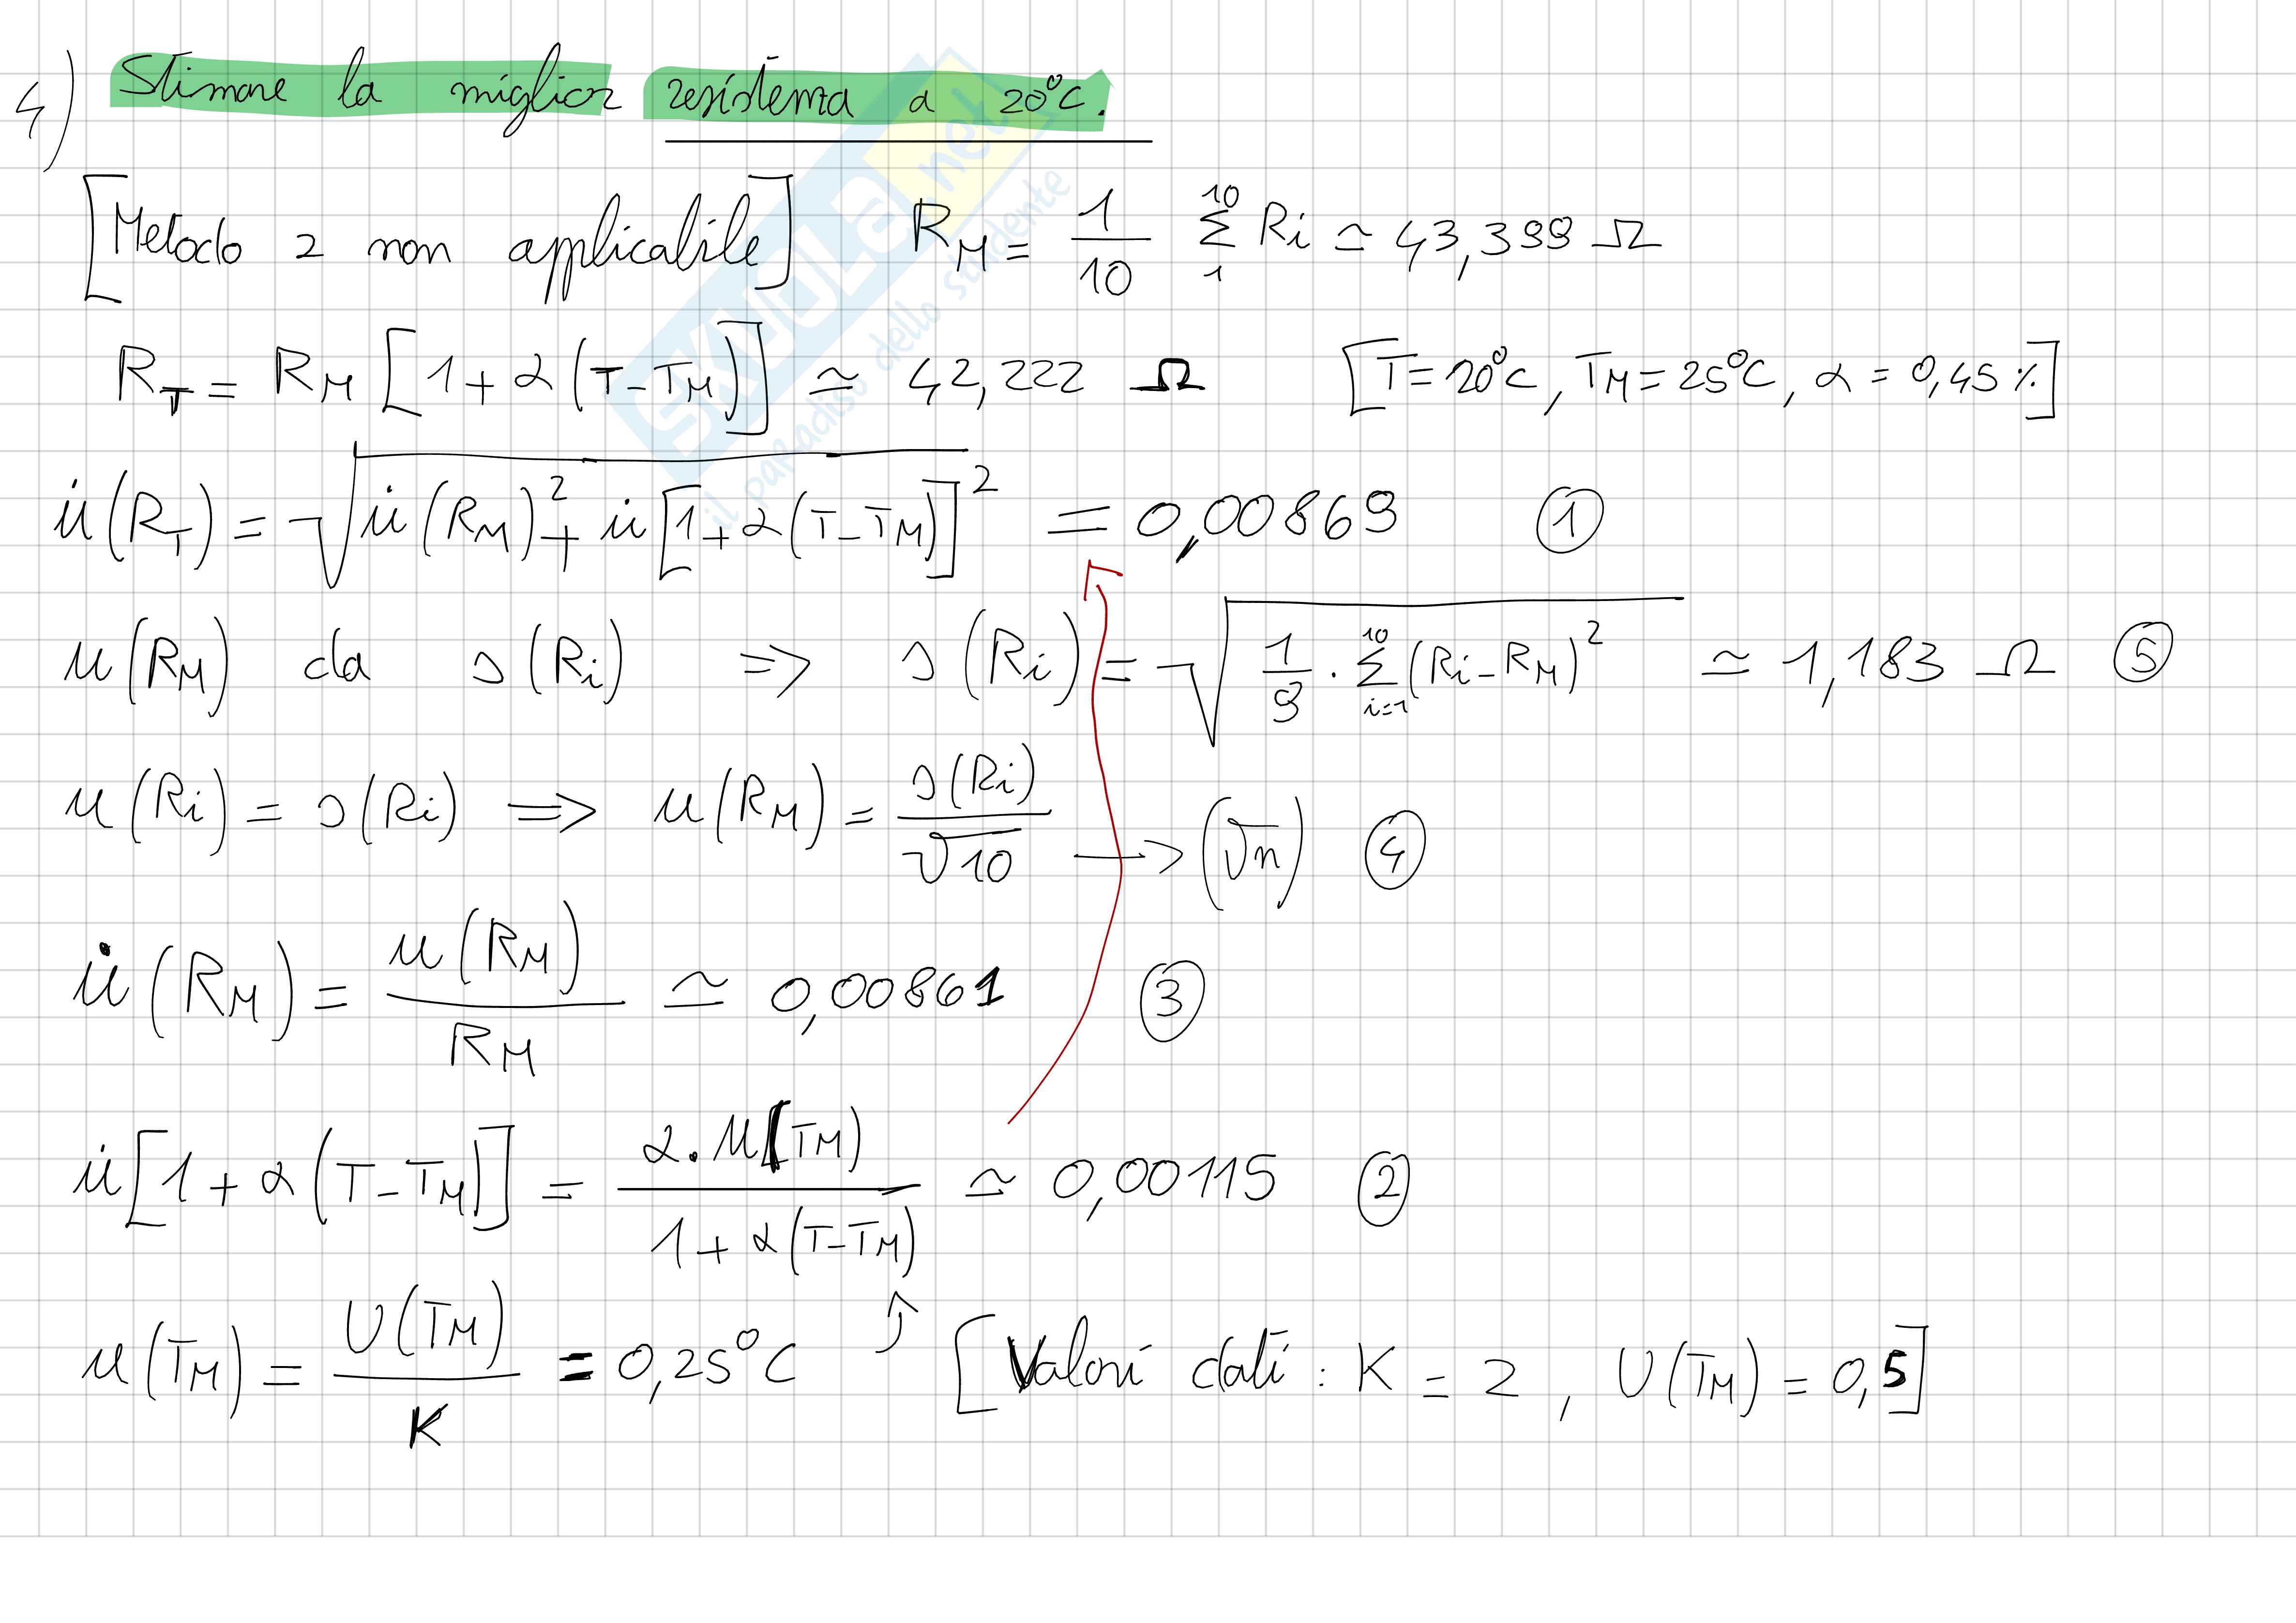 4) Stimare la miglior resistenza a 20°C.
[Metodo 2 non applicabile] R_M = 1/10 Σ_1^10 Ri ≃ 43,399 Ω
R_T = R_M [1 + α (T - T_M)] ≃ 42,222 Ω [T = 20°C, T_M = 25°C, α = 0,45 %]
u̇(R_T) = √(u̇(R_M)² + u̇[1 + α(T - T_M)]²) = 0,00869 ①
u(R_M) da s(Ri) ⇒ s(Ri) = √(1/9 · Σ_{i=1}^10 (Ri - R_M)²) ≃ 1,183 Ω ⑤
u(Ri) = s(Ri) ⇒ u(R_M) = s(Ri)/√10 → (√n) ④
u̇(R_M) = u(R_M)/R_M ≃ 0,00861 ③
u̇[1 + α(T - T_M)] = α · u(T_M)/(1 + α(T - T_M)) ≃ 0,00115 ②
u(T_M) = U(T_M)/K = 0,25°C ↑ [Valori dati : K = 2 , U(T_M) = 0,5]
SKUOLA.net
il paradiso dello studente